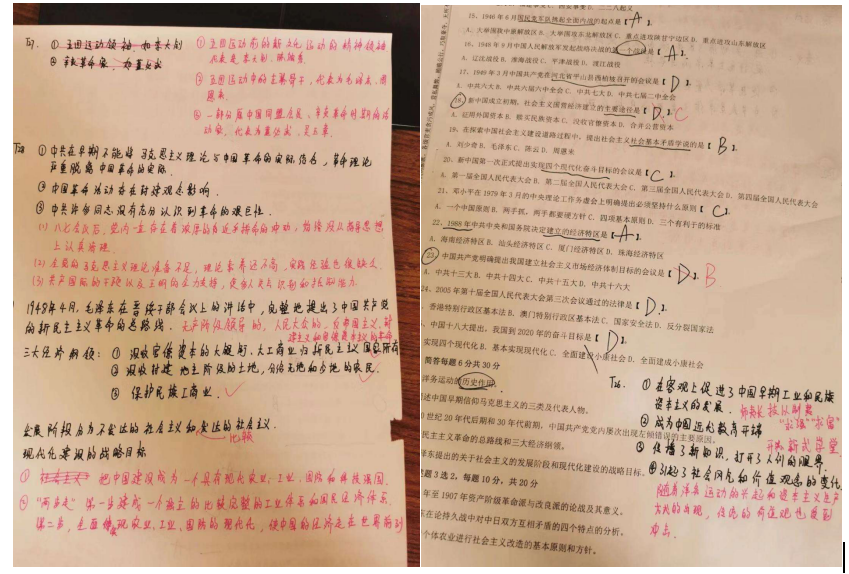 T27. ① 五四运动领袖 如李大钊
② 辛亥革命家，如董必武
① 五四运动前的新文化运动的精神领袖
代表是李大钊、陈独秀.
② 五四运动中的左翼骨干，代表为毛泽东、周恩来.
③ 一部分原中国同盟会员、辛亥革命时期的活动家，代表为董必武、吴玉章.
T28 ① 中共在早期不能将马克思主义理论与中国革命的实际结合，革命理论
严重脱离中国革命的实际.
② 中国革命活动存在封建观念影响.
③ 中共许多同志没有充分认识到革命的艰巨性.
(1) 八七会议后，党内一直存在着浓厚的近乎拼命的冲动，始终没从指导思想
上认真清理.
(2) 全党的马克思主义理论准备不足，理论素养还不高，实践经验也很缺乏.
(3) 共产国际的干预以及王明的全力支持，使
1948年4月，毛泽东在晋绥干部会议上的讲话中，完整地提出了中国共产党
的新民主主义革命的总路线. 无产阶级领导的，人民大众的，反帝国主义、封
建主义和官僚资本主义的革命
三大经济纲领：① 没收官僚资本的大银行、大工商业归新民主主义国家所有
② 没收封建地主阶级的土地，分给无地和少地的农民.
③ 保护民族工商业.
发展阶段分为不发达的社会主义和发达的社会主义.
比较
现代化建设的战略目标
① 把中国建设成为一个具有现代农业、工业、国防和科技强国.
② "两步走" 第一步建成一个独立的比较完整的工业体系和国民经济体系.
第二步，全面实现农业、工业、国防的现代化，使中国的经济走在世界前列
15、1946年6月国民党军队挑起全面内战的起点是【A】.
A. 大举围攻中原解放区 B. 大举围攻东北解放区 C. 重点进攻陕甘宁边区 D. 重点进攻山东解放区
16、1948年9月中国人民解放军发起战略决战的第一个战役是【A】.
A. 辽沈战役 B. 淮海战役 C. 平津战役 D. 渡江战役
17、1949年3月中国共产党在河北省平山县西柏坡召开的会议是【D】.
A. 中共六大 B. 中共六届六中全会 C. 中共七大 D. 中共七届二中全会
18、新中国成立初期，社会主义国营经济建立的主要途径是【D】. C
A. 征用外国资本 B. 赎买民族资本 C. 没收官僚资本 D. 合并公营资本
19、在探索中国社会主义建设道路过程中，提出社会主义社会基本矛盾学说的是【B】.
A. 刘少奇 B. 毛泽东 C. 陈云 D. 周恩来
20、新中国第一次正式提出实现四个现代化奋斗目标的会议是【C】.
A. 第一届全国人民代表大会 B. 第二届全国人民代表大会 C. 第三届全国人民代表大会 D. 第四届全国人民代表大会
21、邓小平在1979年3月的中央理论工作务虚会上明确提出必须坚持什么原则【C】.
A. 一个中国原则 B. 两手抓，两手都要硬方针 C. 四项基本原则 D. 三个有利于的标准
22、1988年中共中央和国务院决定建立的经济特区是【A】.
A. 海南经济特区 B. 汕头经济特区 C. 厦门经济特区 D. 珠海经济特区
23、中国共产党明确提出我国建立社会主义市场经济体制目标的会议是【D】. B
A. 中共十三大 B. 中共十四大 C. 中共十五大 D. 中共十六大
24、2005年第十届全国人民代表大会第三次会议通过的法律是【D】.
香港特别行政区基本法 B. 澳门特别行政区基本法 C. 国家安全法 D. 反分裂国家法
中国十八大提出，我国到2020年的奋斗目标是【D】.
实现四个现代化 B. 基本实现现代化 C. 全面建设小康社会 D. 全面建成小康社会
简答每题6分共30分
洋务运动的历史作用.
述中国早期信仰马克思主义的三类及代表人物.
0世纪20年代后期和30年代前期，中国共产党党内屡次出现左倾错误的主要原因.
民主主义革命的总路线和三大经济纲领.
泽东提出的关于社会主义的发展阶段和现代化建设的战略目标.
题3选2，每题10分，共20分
年至1907年资产阶级革命派与改良派的论战及其意义.
东在论持久战中对中日双方互相矛盾的四个特点的分析.
个体农业进行社会主义改造的基本原则和方针.
T26. ① 在客观上促进了中国早期工业和民族
资本主义的发展.
② 成为中国近代教育开端 "自强" "求富"
开办新式学堂
③ 传播了新知识，打开了人们的眼界.
④ 引起了社会风气和价值观念的变化.
随着洋务运动的兴起和资本主义生产
方式的出现，传统的价值观也受到
冲击.